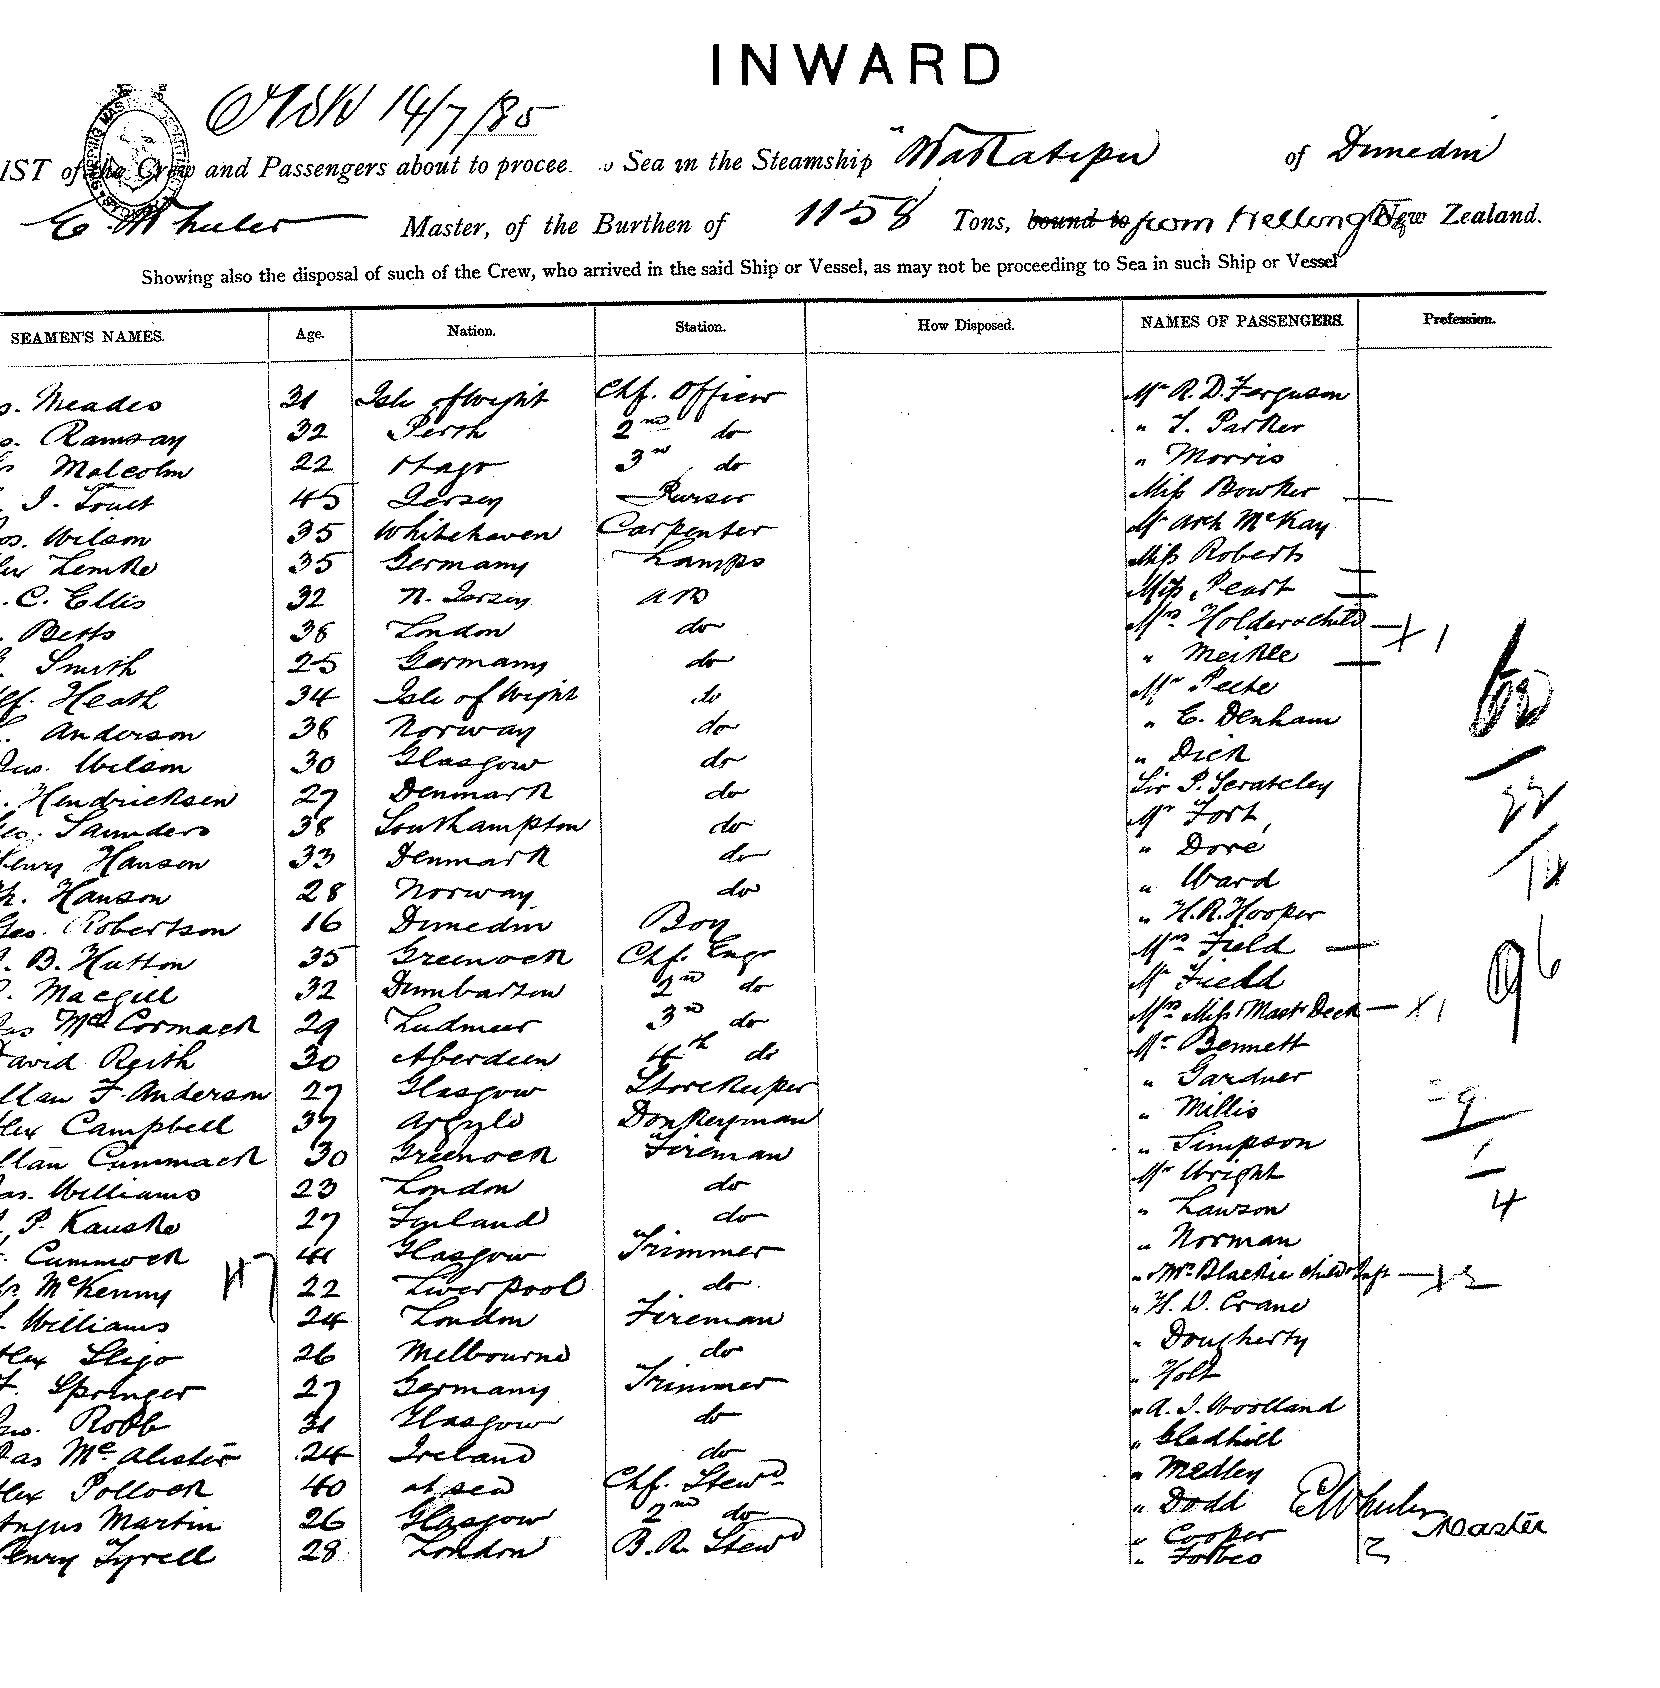 INWARD
14/7/85
IST of the Crew and Passengers about to procee o Sea in the Steamship "Wakatipu of Dunedin
E. Wheeler Master, of the Burthen of 1158 Tons, bound to from Wellington New Zealand.
Showing also the disposal of such of the Crew, who arrived in the said Ship or Vessel, as may not be proceeding to Sea in such Ship or Vessel
SEAMEN'S NAMES. Age. Nation. Station. How Disposed. NAMES OF PASSENGERS. Profession.
s. Meades 31 Isle of Wight Chf. Officer Mr R. D. Ferguson
s. Ramsay 32 Perth 2nd do " T. Parker
Malcolm 22 Otago 3rd do " Morris
J. Tout 45 Jersey Purser Miss Bowker
os. Wilson 35 Whitehaven Carpenter Mr Arch McKay
lex Lemke 35 Germany Lamps Miss Roberts
. C. Ellis 32 N. Jersey AB Miss Peart
. Betts 38 London do Mrs Holder & child X 1
. Smith 25 Germany do " Meikle
lf. Heath 34 Isle of Wight do Mr Peete
. Anderson 38 Norway do " C. Denham
Jas. Wilson 30 Glasgow do " Dick
. Hendricksen 27 Denmark do Sir P. Scratcley
Geo. Saunders 38 Southampton do Mr Fort
Henry Hanson 33 Denmark do " Dore
h. Hanson 28 Norway do " Ward
Geo. Robertson 16 Dunedin Boy " H. R. Hooper
. B. Hutton 35 Greenock Chf. Engr Mrs Field
. Macgill 32 Dumbarton 2nd do Mr Field
Jas McCormack 29 3rd do Mrs Miss & Mast Deck X 1
David Reith 30 Aberdeen 4th do Mr Bennett
llan F. Anderson 27 Glasgow Storekeeper " Gardner
lex Campbell 37 Argyle Donkeyman " Millis
llan Cummack 30 Greenock Fireman " Simpson
as. Williams 23 London do Mr Wright
. P. Kauske 27 do " Lawson
. Cummock 41 Glasgow Trimmer " Norman
McKenny 22 Liverpool do " & Mrs Blackie child & Inft X 2
Williams 24 London Fireman " H. D. Crane
lex Sligo 26 Melbourne do " Dougherty
. Springer 27 Germany Trimmer " Holt
Jas. Robb 31 Glasgow do " A. J. Woolland
as McAlister 24 Ireland do " Gledhill
lex Pollock 40 at sea Chf. Stewd " Medley
Angus Martin 26 Glasgow 2nd do " Dodd
Henry Tyrell 28 London B. R. Stewd " Cooper
" Forbes
E Wheeler Master
96
4